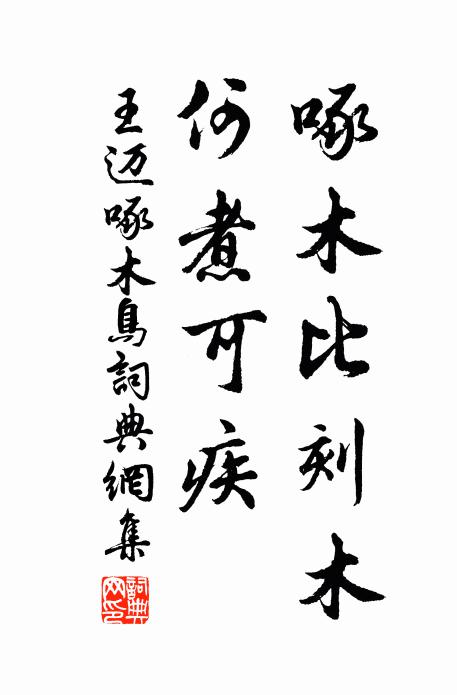 啄木比刻木
何煮可疾
王迈啄木鳥詞典網集
詞典网印